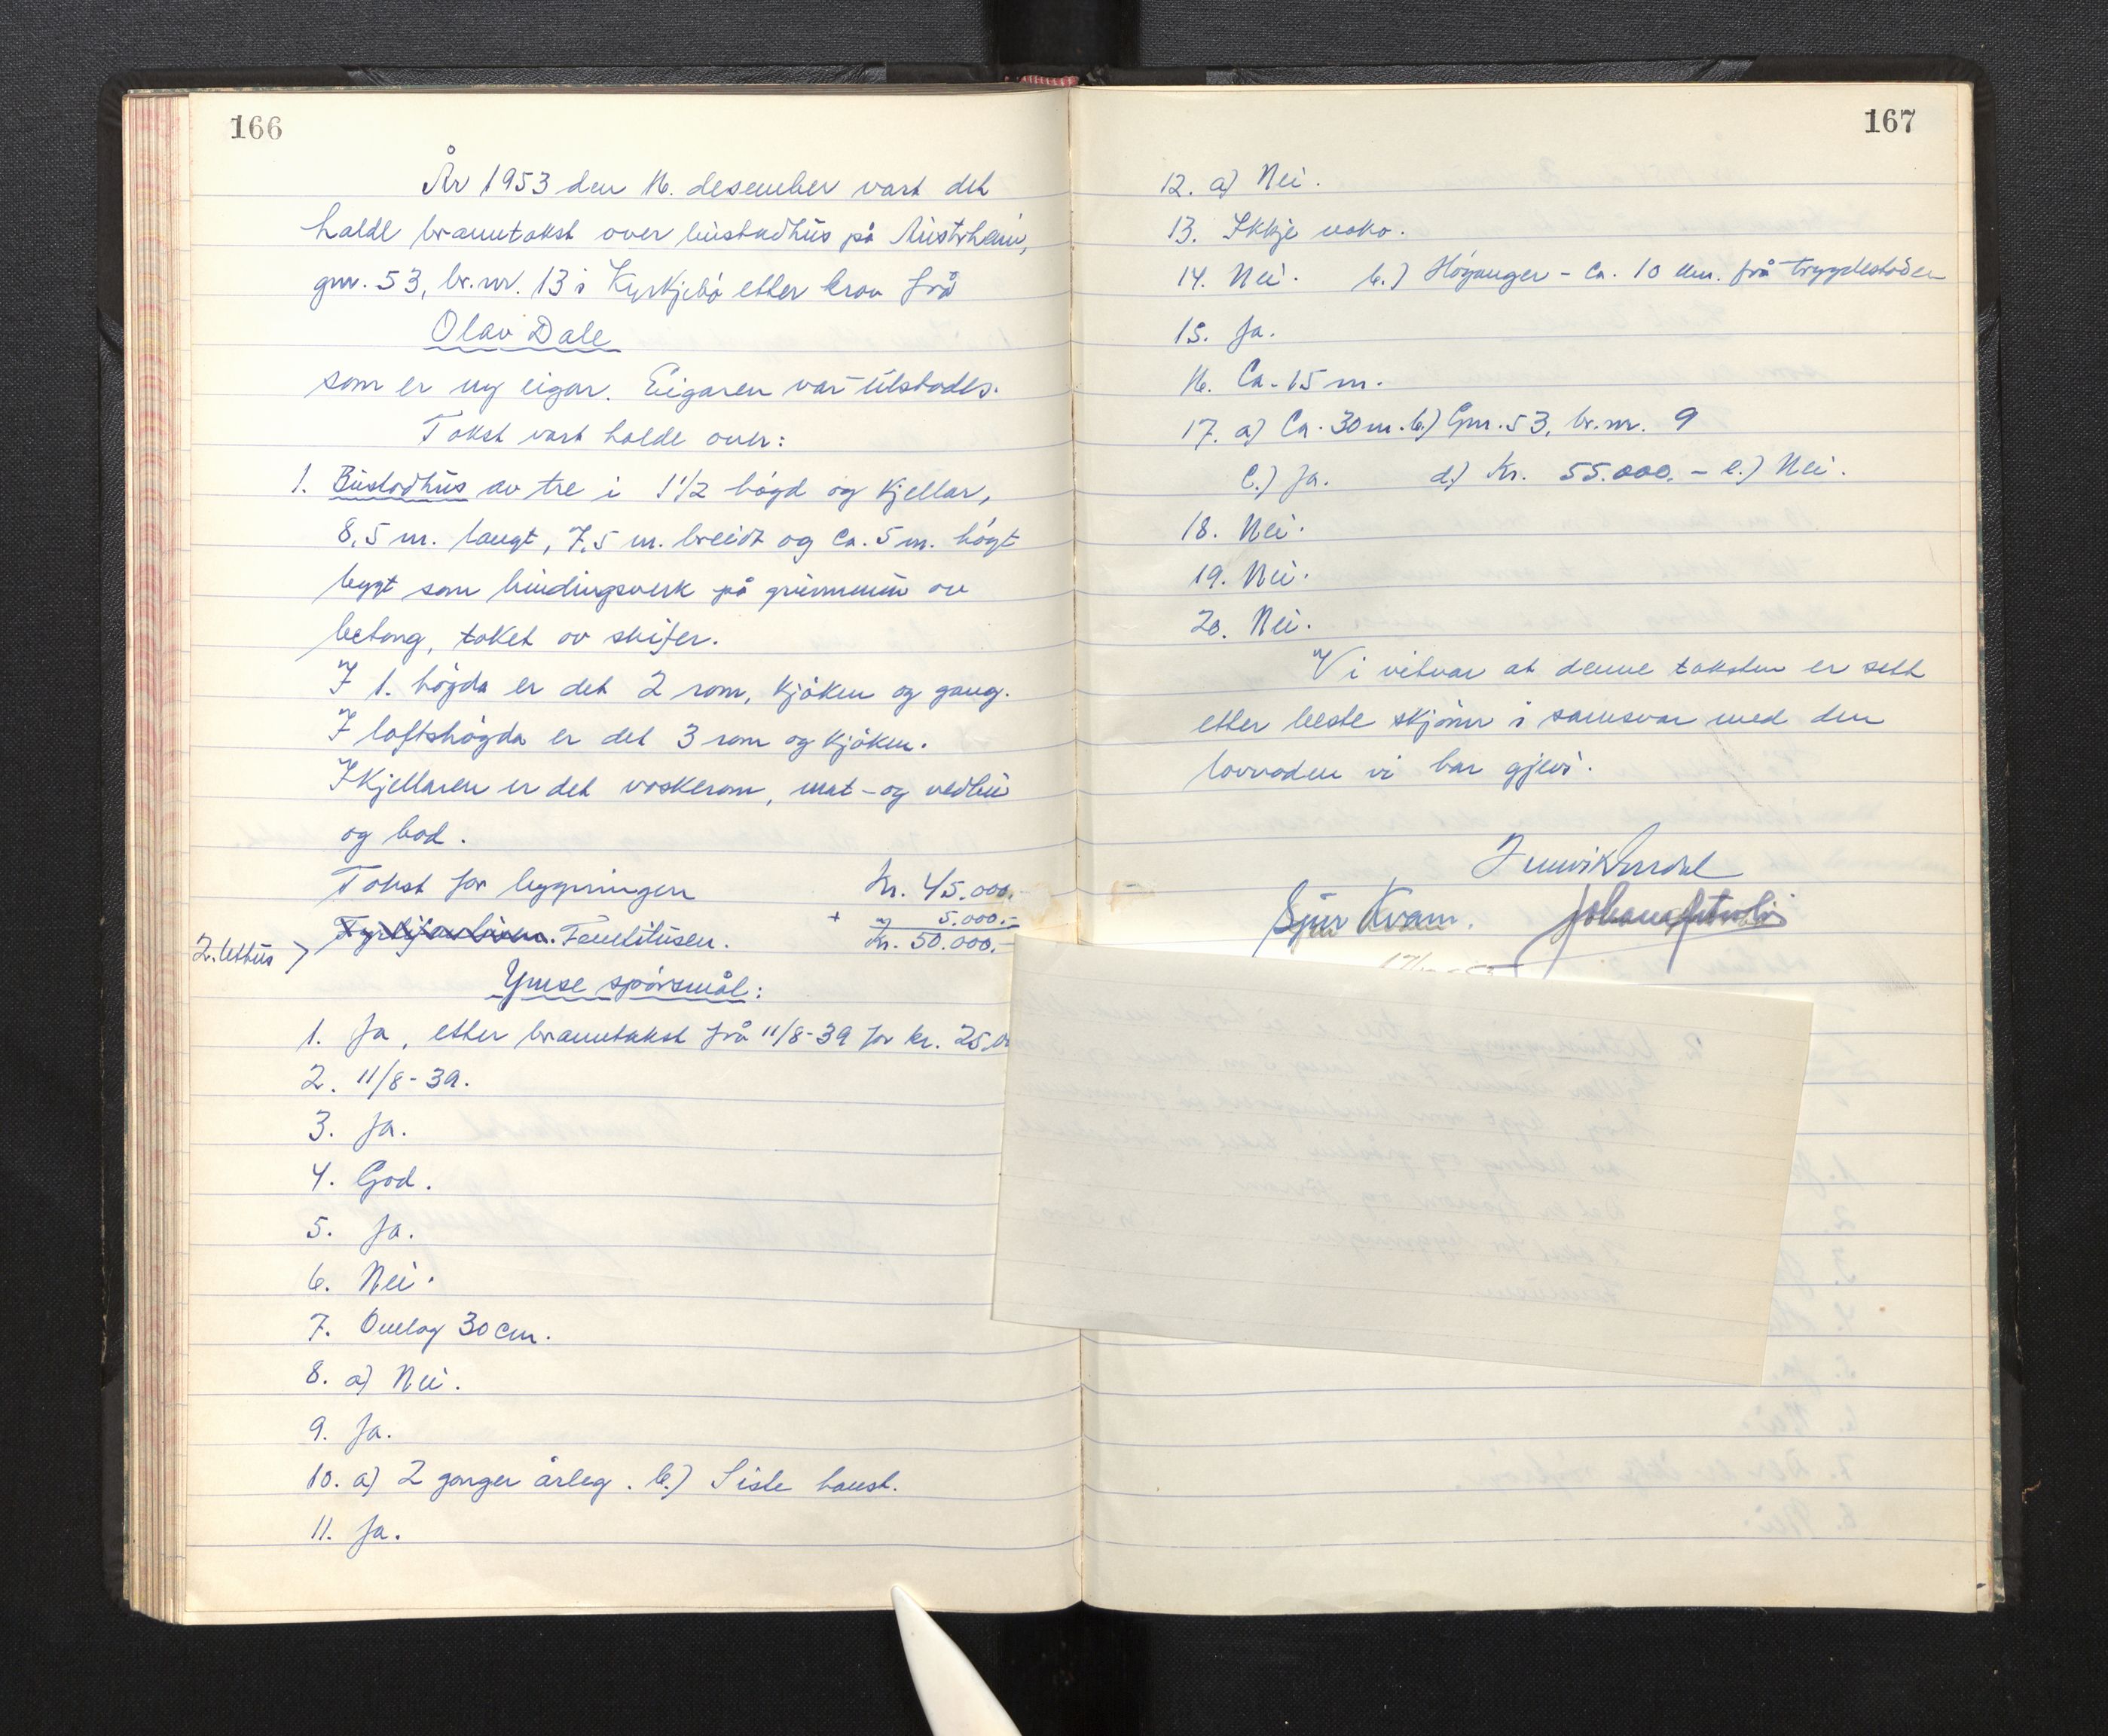 166
År 1953 den 16. desember vart det
halde branntakst over bustadhus på Austrheim,
gnr. 53, br.nr. 13 i Kyrkjebø etter krav frå
Olav Dale
som er ny eigar. Eigaren var tilstades.
Takst vart halde over:
1. Bustadhus av tre i 1 1/2 høgd og kjellar,
8,5 m. langt, 7,5 m. breidt og ca. 5 m. høgt
bygt som bindingsverk på grunnmur av
betong, taket av skifer.
I 1. høgda er det 2 rom, kjøken og gang.
I loftshøgda er det 3 rom og kjøken.
I kjellaren er det vaskerom, mat- og vedbu
og bod.
Takst for bygningen Kr. 45.000.-
+ " 5.000.-
2. Uthus > Femtitusen. Kr. 50.000.-
Ymse spørsmål:
1. Ja, etter branntakst frå 11/8-39 for kr. 25.0
2. 11/8-39.
3. Ja.
4. God.
5. Ja.
6. Nei.
7. Omlag 30 cm.
8. a) Nei.
9. Ja.
10. a) 2 gonger årleg. b.) Siste haust.
11. Ja.
167
12. a) Nei.
13. Ikkje noko.
14. Nei. b.) Høyanger - ca. 10 km. frå trygdestaden
15. Ja.
16. Ca. 15 m.
17. a) Ca. 30 m. b.) Gnr. 53, br.nr. 9
c.) Ja. d) Kr. 55.000.- e.) Nei.
18. Nei.
19. Nei.
20. Nei.
Vi vitnar at denne taksten er sett
etter beste skjønn i samsvar med den
lovnaden vi har gjevi.
Sjur Kvam.